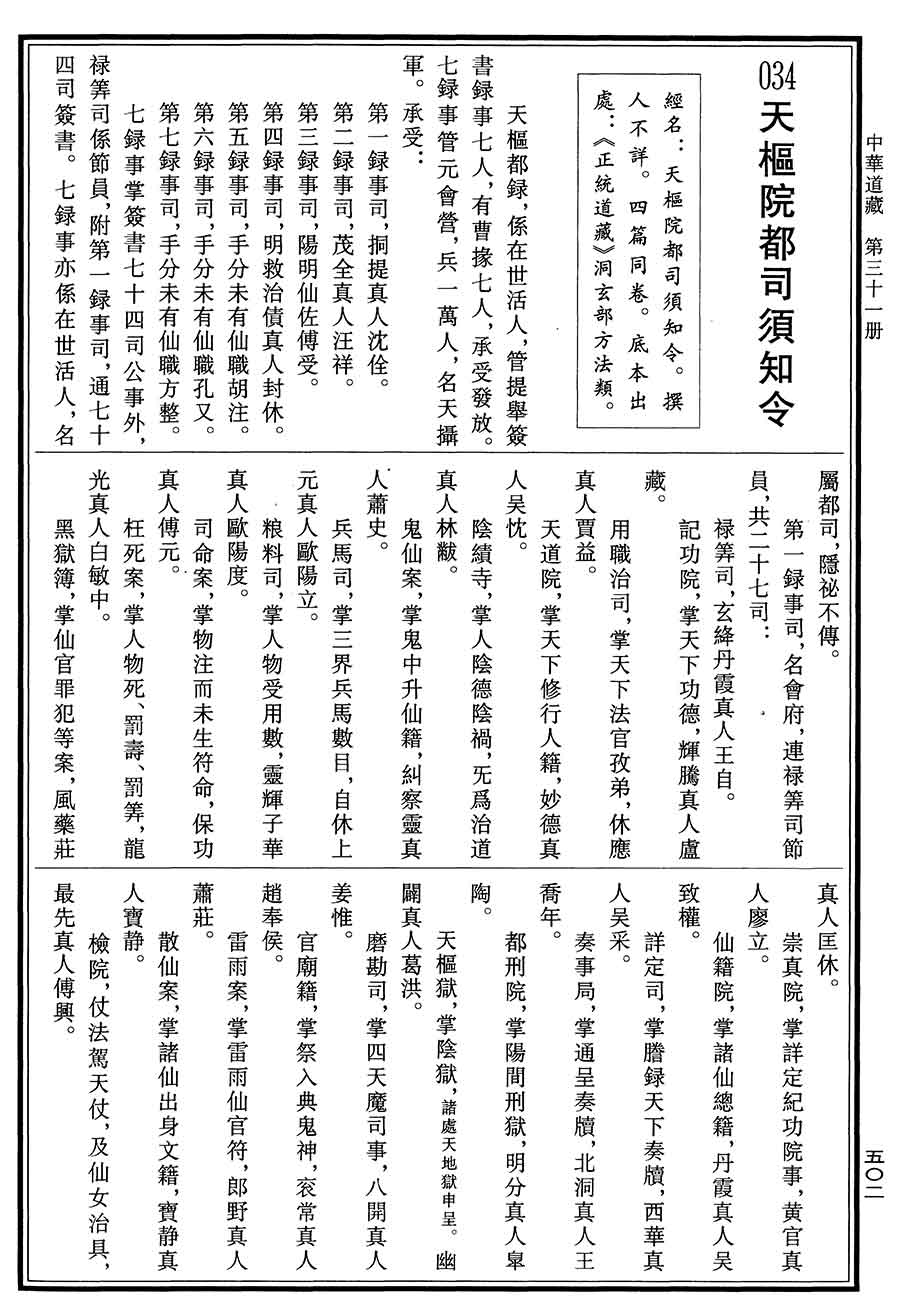 中華道藏　第三十一册
五〇二
034天樞院都司須知令
經名：天樞院都司須知令。撰
人不詳。四篇同卷。底本出
處：《正統道藏》洞玄部方法類。
天樞都録，係在世活人，管提舉簽
書録事七人，有曹掾七人，承受發放。
七録事管元會營，兵一萬人，名天攝
軍。承受：
第一録事司，挏提真人沈佺。
第二録事司，茂全真人汪祥。
第三録事司，陽明仙佐傅受。
第四録事司，明救治債真人封休。
第五録事司，手分未有仙職胡注。
第六録事司，手分未有仙職孔又。
第七録事司，手分未有仙職方整。
七録事掌簽書七十四司公事外，
禄筭司係節員，附第一録事司，通七十
四司簽書。七録事亦係在世活人，名
屬都司，隱祕不傳。
第一録事司，名會府，連禄筭司節
員，共二十七司：
禄筭司，玄絳丹霞真人王自。
記功院，掌天下功德，輝騰真人盧
藏。
用職治司，掌天下法官孜弟，休應
真人賈益。
天道院，掌天下修行人籍，妙德真
人吴忱。
陰績寺，掌人陰德陰禍，旡爲治道
真人林黻。
鬼仙案，掌鬼中升仙籍，糾察靈真
人蕭史。
兵馬司，掌三界兵馬數目，自休上
元真人歐陽立。
粮料司，掌人物受用數，靈輝子華
真人歐陽度。
司命案，掌物注而未生符命，保功
真人傅元。
枉死案，掌人物死、罰壽、罰筭，龍
光真人白敏中。
黑獄簿，掌仙官罪犯等案，風藥莊
真人匡休。
崇真院，掌詳定紀功院事，黄官真
人廖立。
仙籍院，掌諸仙總籍，丹霞真人吴
致權。
詳定司，掌謄録天下奏牘，西華真
人吴采。
奏事局，掌通呈奏牘，北洞真人王
喬年。
都刑院，掌陽間刑獄，明分真人臯
陶。
天樞獄，掌陰獄，諸處天地獄申呈。幽
闢真人葛洪。
磨勘司，掌四天魔司事，八開真人
姜惟。
官廟籍，掌祭入典鬼神，衮常真人
趙奉侯。
雷雨案，掌雷雨仙官符，郎野真人
蕭莊。
散仙案，掌諸仙出身文籍，寶静真
人寶静。
檢院，仗法駕天仗，及仙女治具，
最先真人傅興。